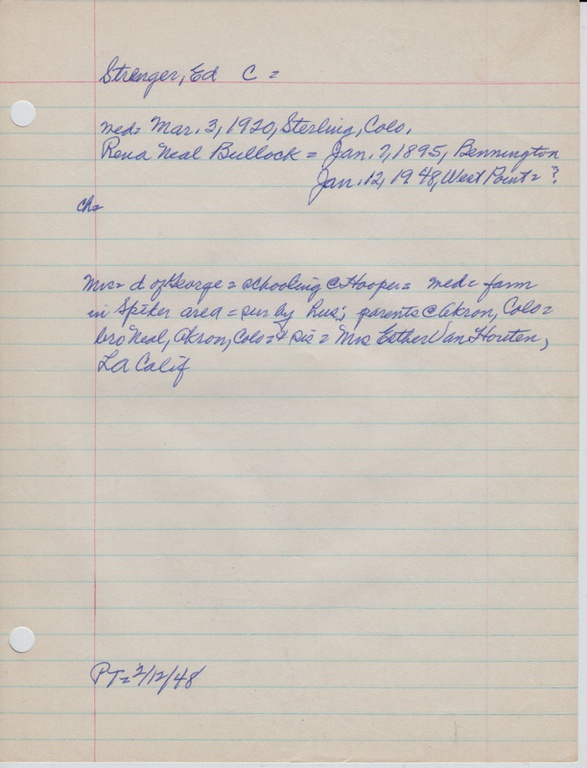 Strenger, Ed C =
med= Mar. 3, 1920, Sterling, Colo.
Rena Neal Bullock = Jan. 7, 1895, Bennington
Jan. 12, 1948, West Point = ?
ch=
Mrs= d of George = schooling @ Hooper = med = farm
in Spiker area = sur by hus; parents @ Akron, Colo =
bro Neal, Akron, Colo = & sis = Mrs Esther Van Houten,
LA Calif
PT= 2/12/48